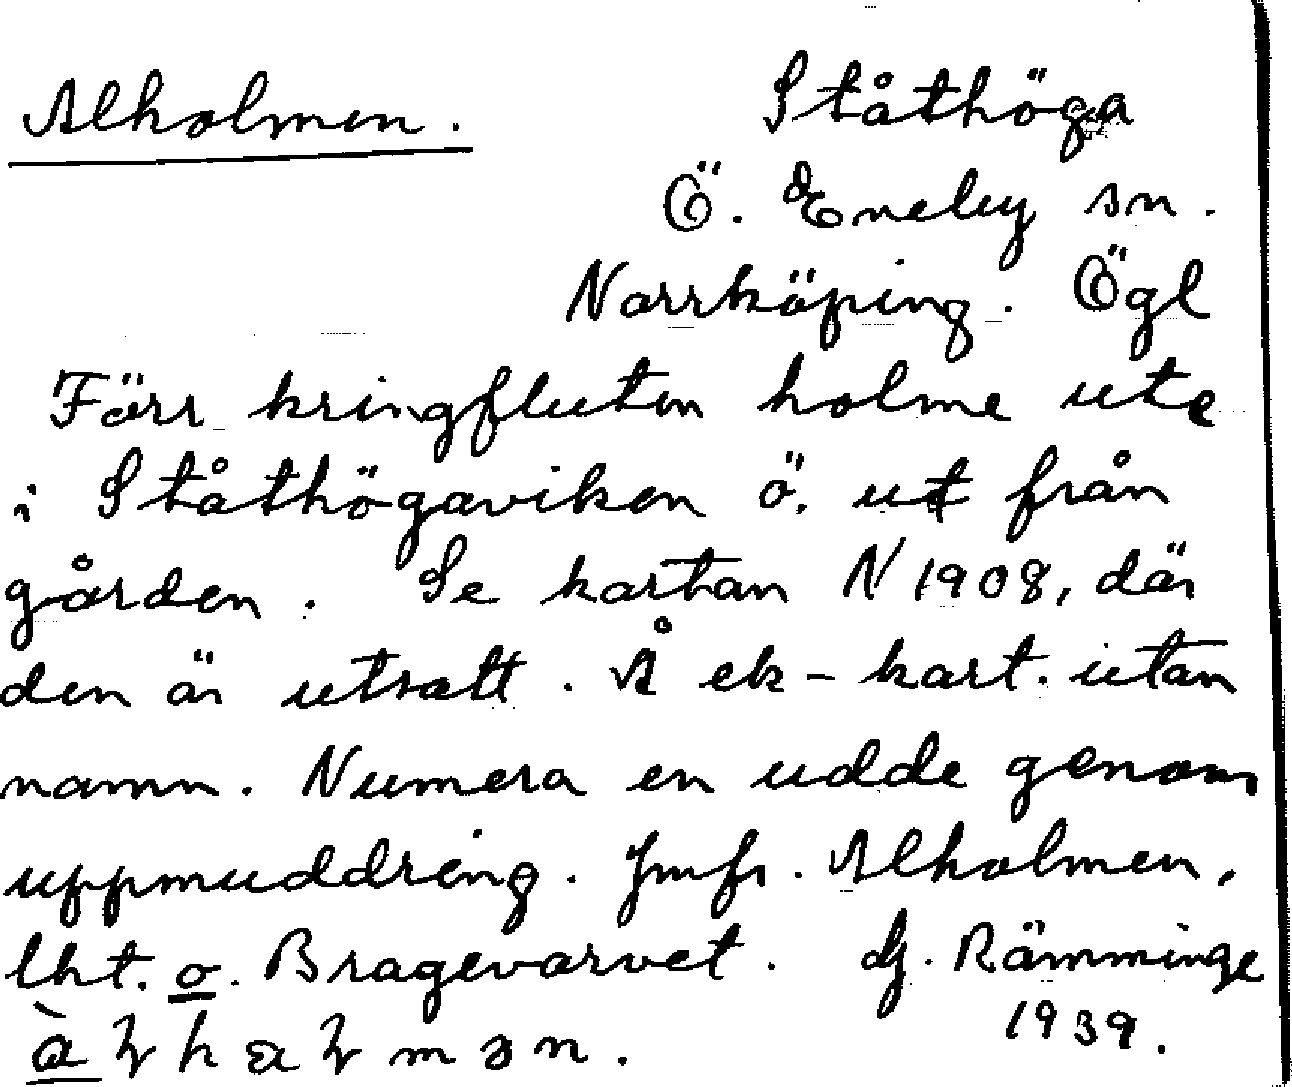 Alholmen. Ståthöga
Ö. Eneby sn.
Norrköping. Ögl
Förr kringfluten holme ute
i Ståthögaviken ö. ut från
gården. Se kartan N 1908, där
den är utsatt. Å ek-kart. utan
namn. Numera en udde genom
uppmuddring. Jmfr. Alholmen,
lht. o. Bragevarvet. G. Rämminge
1939.